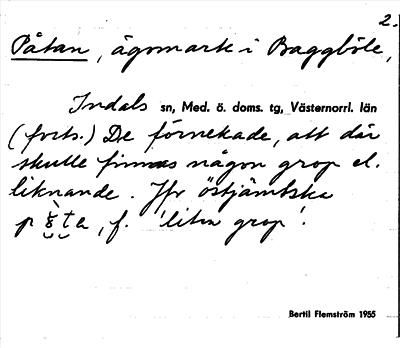 2.
Påtan, ägomark i Baggböle,
Indals sn, Med. ö. doms. tg, Västernorrl. län
(forts.) De förnekade, att där
skulle finnas någon grop el.
liknande. Jfr östjämtska
, f. 'liten grop'.
Bertil Flemström 1955